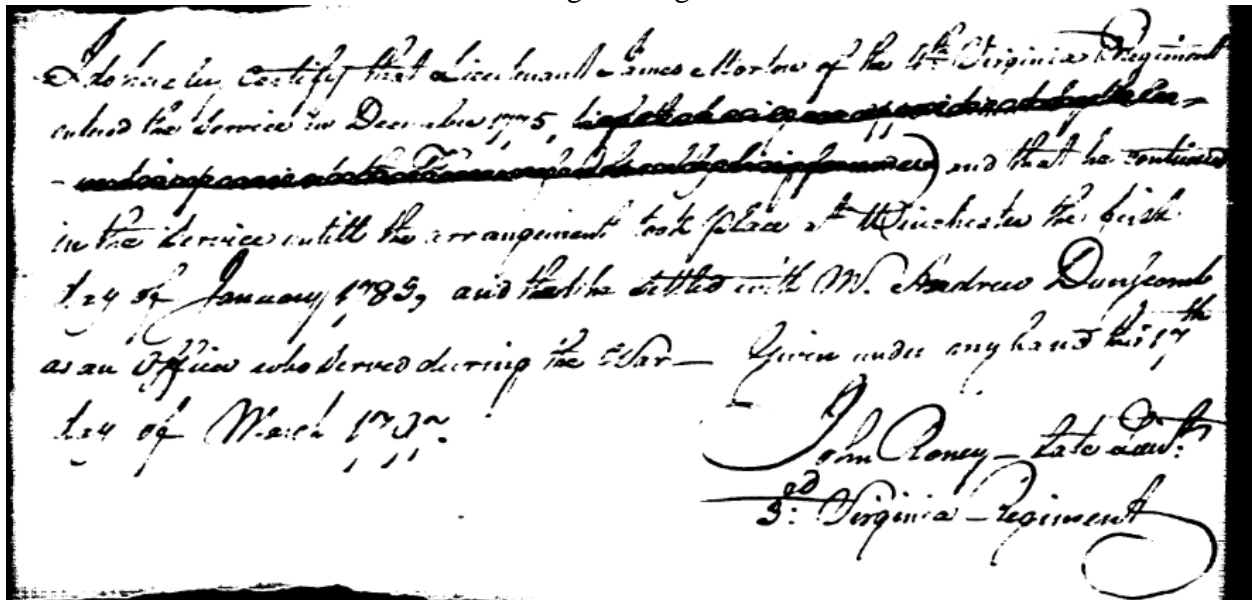 I do hereby certify that Lieutenant James Morton of the 4th Virginia Regiment
entered the Service in December 1775,
and that he continued
in the Service untill the arrangement took place at Winchester the first
day of January 1783, and that he settled with Mr. Andrew Dunscomb
as an Officer who served during the War — Given under my hand this 17th
day of March
John Roney — late Lieut:
3d: Virginia Regiment